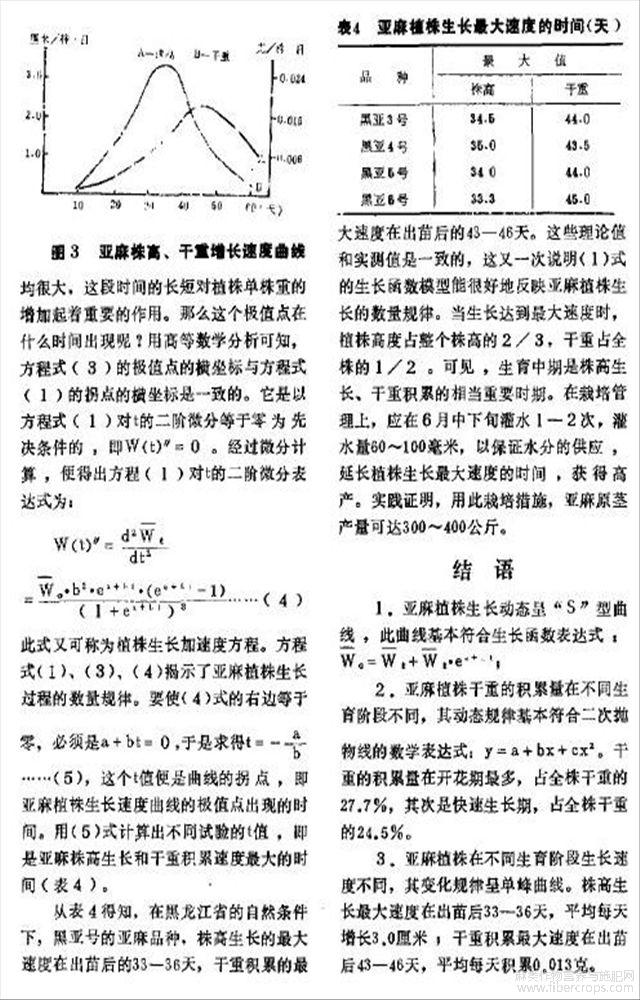 厘米/株·日
A—株高 B—干重
克/株·日
3.0
2.0
1.0
0.024
0.016
0.008
10 20 30 40 50 60(天)
图3 亚麻株高、干重增长速度曲线
均很大，这段时间的长短对植株单株重的
增加起着重要的作用。那么这个极值点在
什么时间出现呢？用高等数学分析可知，
方程式（3）的极值点的横坐标与方程式
（1）的拐点的横坐标是一致的。它是以
方程式（1）对t的二阶微分等于零为先
决条件的，即W(t)″=0。经过微分计
算，便得出方程（1）对t的二阶微分表
达式为：
W(t)″=d²W̄t/dt²
……（4）
此式又可称为植株生长加速度方程。方程
式(1)、(3)、(4)揭示了亚麻植株生长
过程的数量规律。要使(4)式的右边等于
零，必须是a+bt=0,于是求得t=-a/b
……(5)，这个t值便是曲线的拐点，即
亚麻植株生长速度曲线的极值点出现的时
间。用(5)式计算出不同试验的t值，即
是亚麻株高生长和干重积累速度最大的时
间（表4）。
从表4得知，在黑龙江省的自然条件
下，黑亚号的亚麻品种，株高生长的最大
速度在出苗后的33—36天，干重积累的最
表4 亚麻植株生长最大速度的时间(天)
品种 最大值
株高 干重
黑亚3号 34.5 44.0
黑亚4号 35.0 43.5
黑亚5号 34.0 44.0
黑亚6号 33.3 45.0
大速度在出苗后的43—46天。这些理论值
和实测值是一致的，这又一次说明(1)式
的生长函数模型能很好地反映亚麻植株生
长的数量规律。当生长达到最大速度时，
植株高度占整个株高的2/3，干重占全
株的1/2。可见，生育中期是株高生
长、干重积累的相当重要时期。在栽培管
理上，应在6月中下旬灌水1—2次，灌
水量60～100毫米，以保证水分的供应，
延长植株生长最大速度的时间，获得高
产。实践证明，用此栽培措施，亚麻原茎
产量可达300～400公斤。
结语
1．亚麻植株生长动态呈“S”型曲
线，此曲线基本符合生长函数表达式：
2．亚麻植株干重的积累量在不同生
育阶段不同，其动态规律基本符合二次抛
物线的数学表达式：y=a+bx+cx²。干
重的积累量在开花期最多，占全株干重的
27.7%，其次是快速生长期，占全株干重
的24.5%。
3．亚麻植株在不同生育阶段生长速
度不同，其变化规律呈单峰曲线。株高生
长最大速度在出苗后33—36天，平均每天
增长3.0厘米；干重积累最大速度在出苗
后43—46天，平均每天积累0.013克。
麻类作物营养与施肥网
www.fibercrops.com